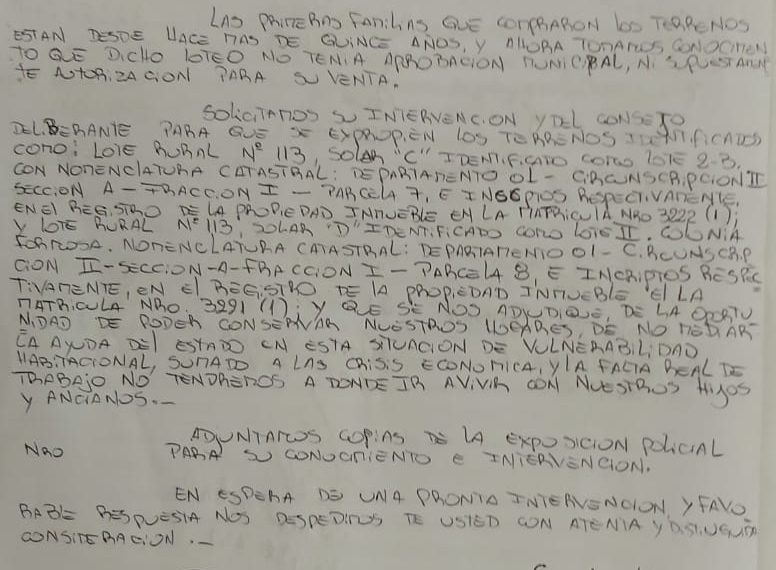 LAS PRIMERAS FAMILIAS QUE COMPRARON LOS TERRENOS
ESTAN DESDE HACE MAS DE QUINCE AÑOS, Y AHORA TOMAMOS CONOCIMIEN
TO QUE DICHO LOTEO NO TENIA APROBACION MUNICIPAL, NI SUPUESTAMEN
TE AUTORIZACION PARA SU VENTA.
SOLICITAMOS SU INTERVENCION Y DEL CONSEJO
DELIBERANTE PARA QUE SE EXPROPIEN LOS TERRENOS IDENTIFICADOS
COMO: LOTE RURAL Nº 113, SOLAR "C" IDENTIFICADO COMO LOTE 2-B.
CON NOMENCLATURA CATASTRAL: DEPARTAMENTO 01- CIRCUNSCRIPCION II
SECCION A - FRACCION I - PARCELA 7, E INSCRIPTOS RESPECTIVAMENTE,
EN EL REGISTRO DE LA PROPIEDAD INMUEBLE EN LA MATRICULA NRO 3222 (1);
Y LOTE RURAL Nº 113, SOLAR "D" IDENTIFICADO COMO LOTE II. COLONIA
FORMOSA. NOMENCLATURA CATASTRAL: DEPARTAMENTO 01- CIRCUNSCRIP
CION II-SECCION-A-FRACCION I - PARCELA 8, E INCRIPTOS RESPEC
TIVAMENTE, EN EL REGISTRO DE LA PROPIEDAD INMUEBLE EL LA
MATRICULA NRO. 3291 (1); Y QUE SE NOS ADJUDIQUE, DE LA OPORTU
NIDAD DE PODER CONSERVAR NUESTROS HOGARES, DE NO MEDIAR
LA AYUDA DEL ESTADO EN ESTA SITUACION DE VULNERABILIDAD
HABITACIONAL, SUMADO A LAS CRISIS ECONOMICA, Y LA FALTA REAL DE
TRABAJO NO TENDREMOS A DONDE IR A VIVIR CON NUESTROS HIJOS
Y ANCIANOS.-
ADJUNTAMOS COPIAS DE LA EXPOSICION POLICIAL
NRO PARA SU CONOCIMIENTO E INTERVENCION.
EN ESPERA DE UNA PRONTA INTERVENCION, Y FAVO
RABLE RESPUESTA NOS DESPEDIMOS DE USTED CON ATENTA Y DISTINGUIDA
CONSIDERACION.-